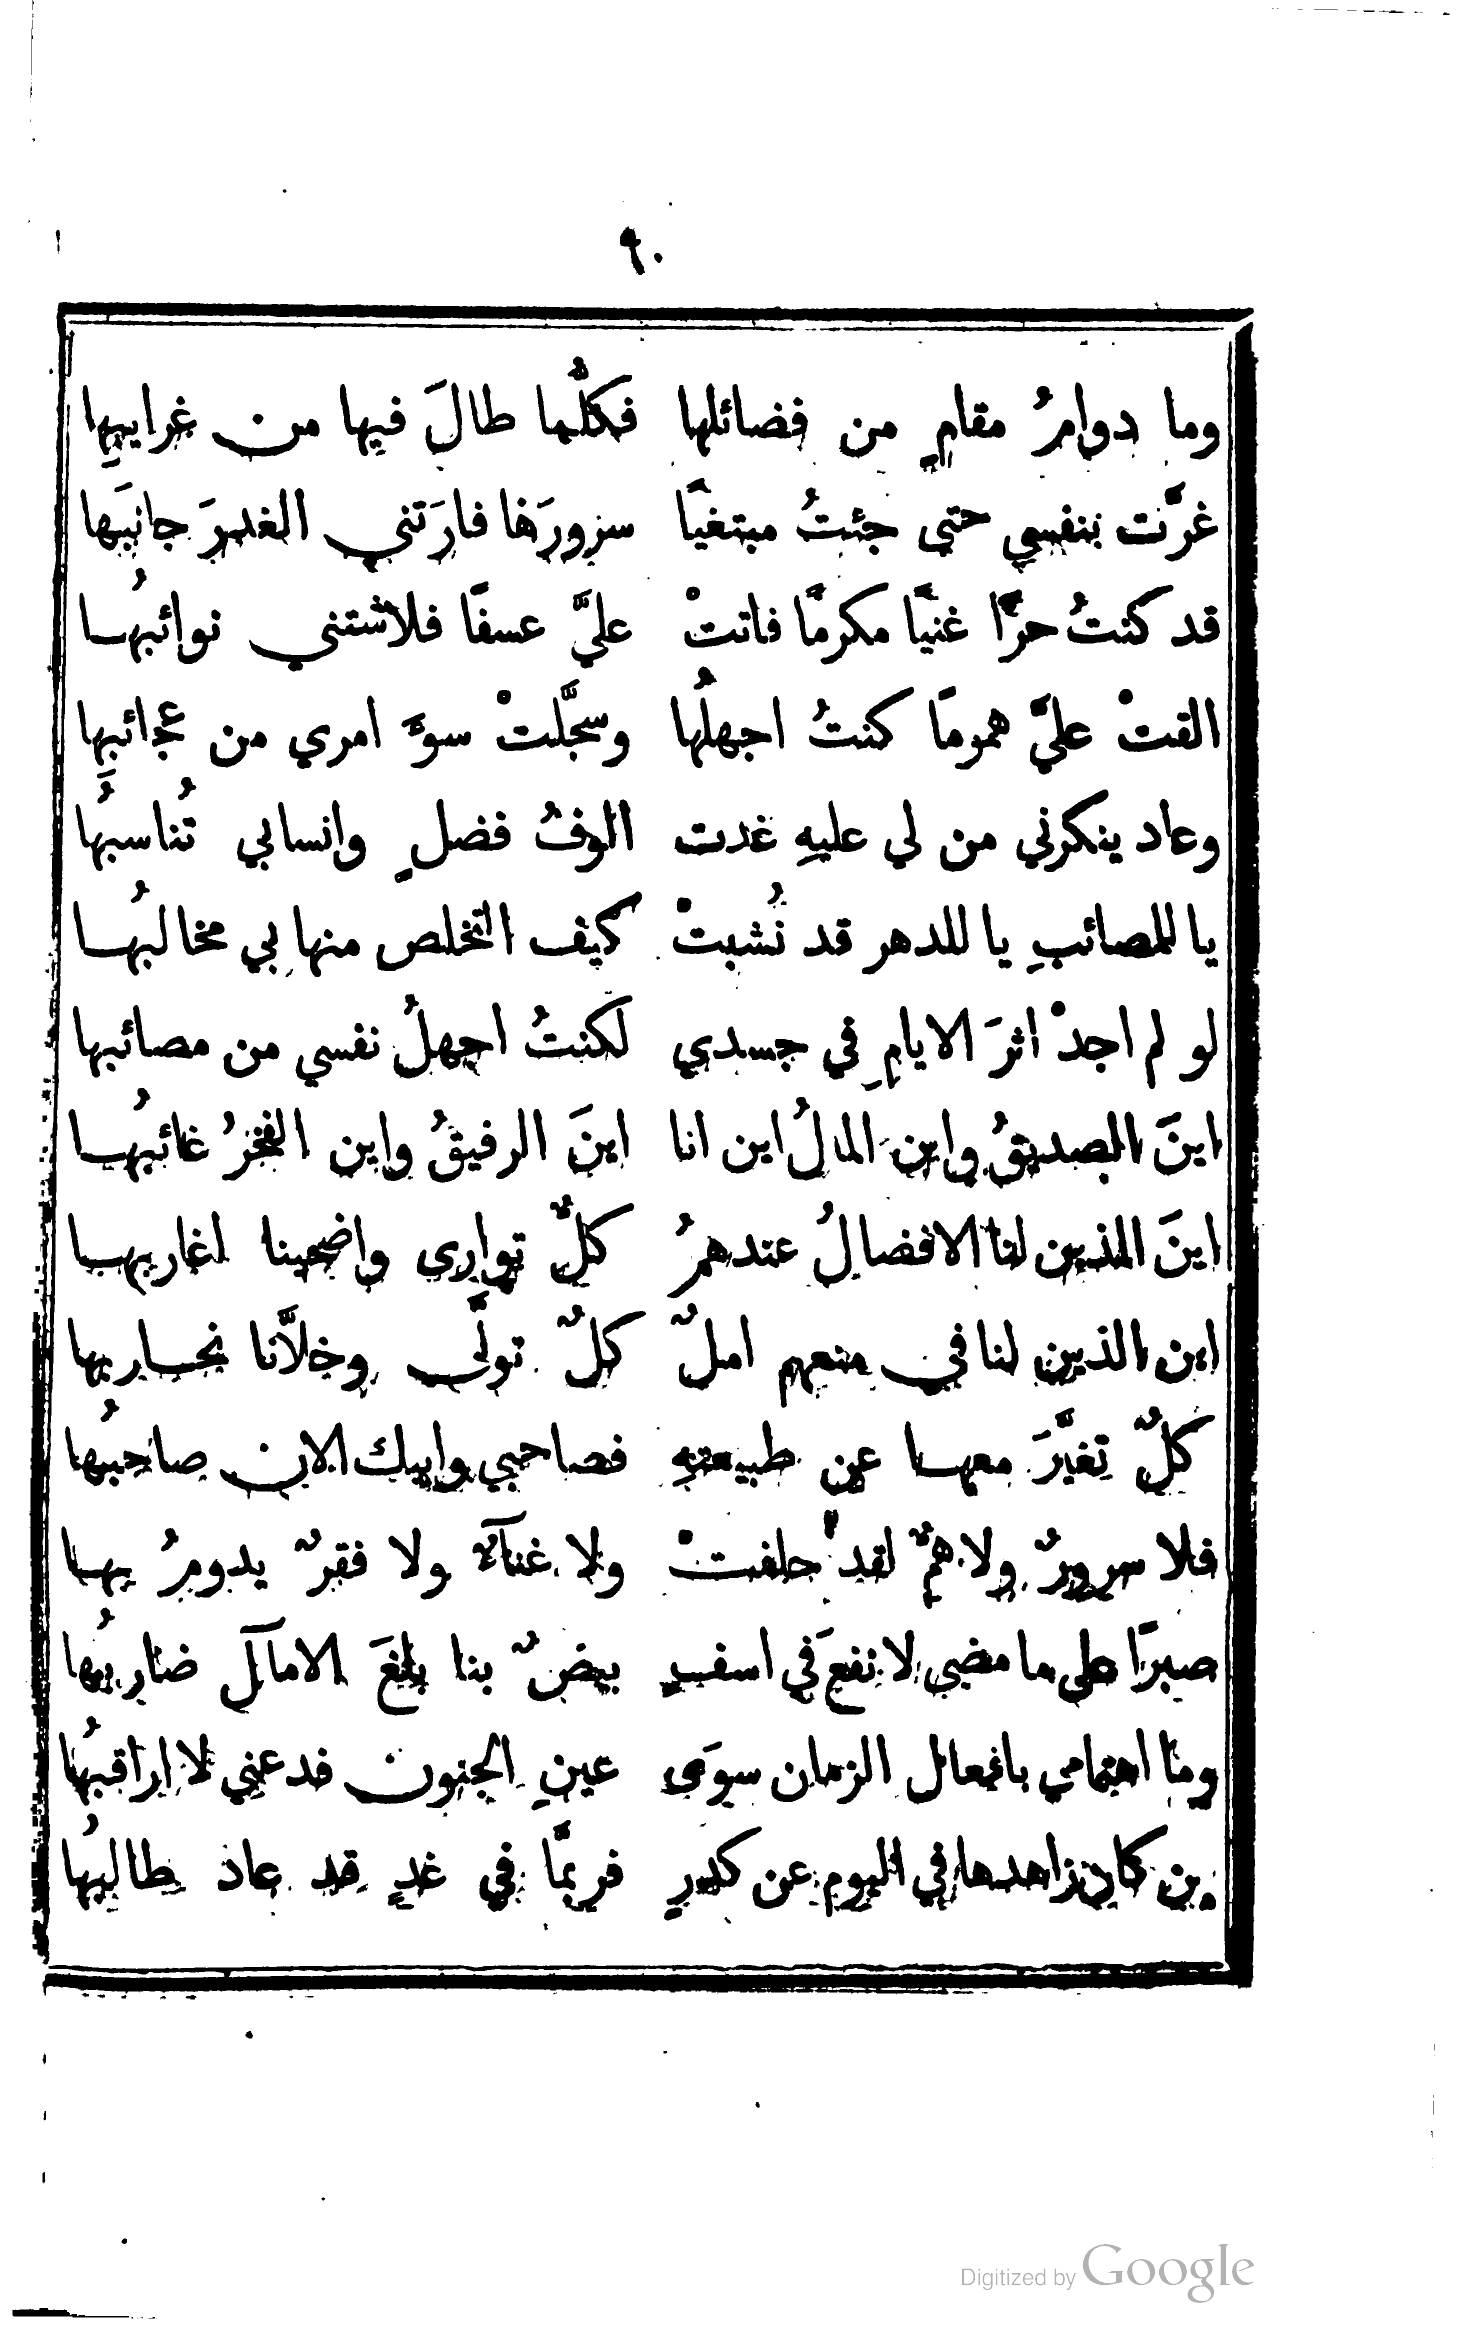 ٩٠
وما دوامُ مقامٍ من فضائلها فكلُّما طالَ فيها من غرايبِها
غرَّت بنفسي حتى جئتُ مبتغيًا سرورَها فارَتني الغدرَ جانبَها
قد كنتُ حرًّا غنيًا مكرمًا فاتتْ عليَّ عسفًا فلاشتني نوائبُها
القتْ عليَّ همومًا كنتُ اجهلُها وسجَّلتْ سوءَ امري من عجائبِها
وعاد ينكرني من لي عليهِ غدت الوفُ فضلٍ وانسابي تُناسبُها
يا للمصائبِ يا للدهر قد نُشبتْ كيف التخلص منها بي مخالبُها
لو لم اجدْ اثرَ الايامِ في جسدي لكنتُ اجهلُ نفسي من مصائبها
اينَ الصديقُ واين المالُ اين انا اينَ الرفيقُ واين الفخرُ غائبُها
اينَ الذين لنا الافضالُ عندهمُ كلٌّ توارى واضحينا اغاريبها
اين الذين لنا في منعهم املٌ كلٌ تولَّى وخلاَّنا نحاربها
كلٌ تغيَّرَ معها عن طبيعتهِ فصاحبي وابيك الان صاحبُها
فلا سرورٌ ولا همٌ لقد حلفتْ ولا غنآءٌ ولا فقرٌ يدومُ بها
صبرًا على ما مضى لا نفعَ في اسفٍ بيضٌ بنا بلغَ الامآل ضاربُها
وما اهتمامي بافعال الزمان سوَى عينِ الجنون فدعني لا اراقبُها
من كان زاهدها في اليوم عن كدرٍ فربمَّا في غدٍ قد عاد طالبُها
Digitized by Google